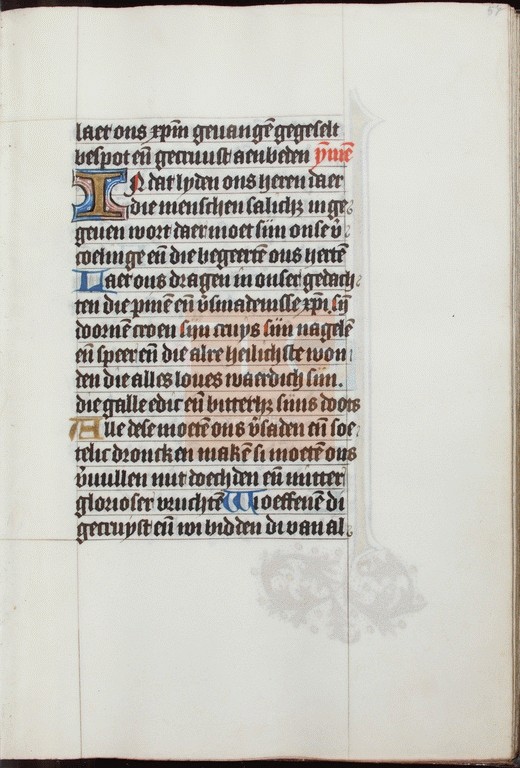 laet ons xpm̄ geuangē gegeselt
bespot eñ gecruust aenbeden ymē
IN dat lyden ons heren daer
die menschen salichz in ge
geuen wort daer moet siin onse v̄
coelinge eñ die begeerte ons hertē
Laet ons dragen in onser gedach
ten die pinē eñ v̄smadenisse xpi. sij
doornē croen siin cruys siin nagelē
eñ speer eñ die alre heilichste won
den die alles loues waerdich siin.
die galle edic eñ bitterhz siins doots
Alle dese moetē ons v̄saden eñ soe
telic droncken makē si moetē ons
v̄uullen mit doechden eñ mitter
glorioser vruchtē Wi oeffenē di
gecruyst eñ wi bidden di van al